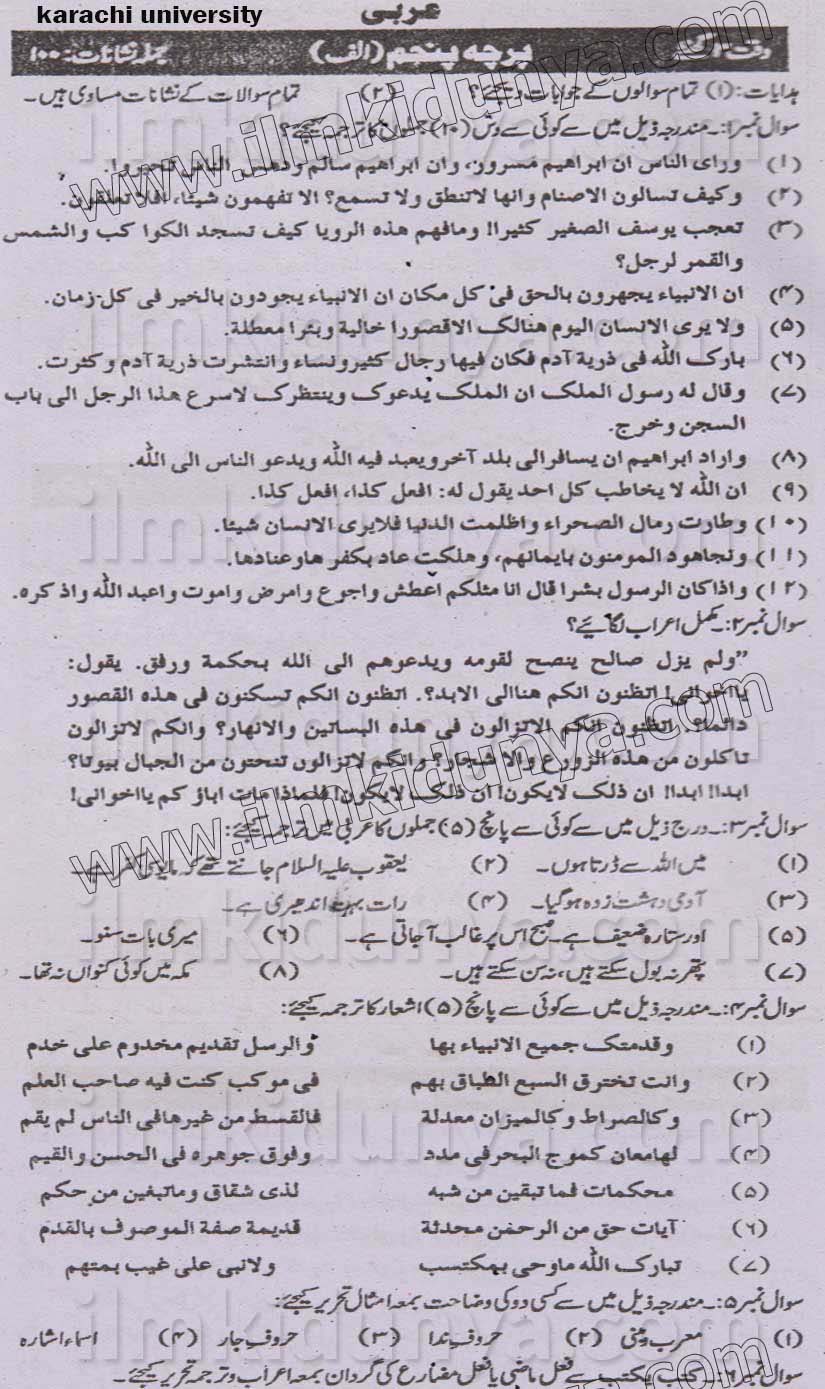 karachi university
عربی
وقت: ۳ گھنٹے پرچہ پنجم (الف) جملہ نشانات: ۱۰۰
ہدایات: (۱) تمام سوالوں کے جوابات دیجئے؟ (۲) تمام سوالات کے نشانات مساوی ہیں۔
سوال نمبر۱:۔ مندرجہ ذیل میں سے کوئی سے دس (۱۰) جملوں کا ترجمہ کیجئے؟
(۱) ورای الناس ان ابراهیم مسرور، وان ابراهیم سالم ودهش الناس وتحیروا!
(۲) وکیف تسالون الاصنام وانها لاتنطق ولا تسمع؟ الا تفهمون شیئا، افلا تعقلون.
(۳) تعجب یوسف الصغیر کثیرا! ومافهم هذه الرویا کیف تسجد الکوا کب والشمس
والقمر لرجل؟
(۴) ان الانبیاء یجهرون بالحق فی کل مکان ان الانبیاء یجودون بالخیر فی کل زمان.
(۵) ولا یری الانسان الیوم هنالک الاقصورا خالیة وبئرا معطلة.
(۶) بارک الله فی ذریة آدم فکان فیها رجال کثیرونساء وانتشرت ذریة آدم وکثرت.
(۷) وقال له رسول الملک ان الملک یدعوک وینتظرک لاسرع هذا الرجل الی باب
السجن وخرج.
(۸) واراد ابراهیم ان یسافرالی بلد آخرویعبد فیه الله ویدعو الناس الی الله.
(۹) ان الله لا یخاطب کل احد یقول له: افعل کذا، افعل کذا.
(۱۰) وطارت رمال الصحراء واظلمت الدنیا فلایری الانسان شیئا.
(۱۱) ونجاهود المومنون بایمانهم، وهلکت عاد بکفر هاوعنادها.
(۱۲) واذاکان الرسول بشرا قال انا مثلکم اعطش واجوع وامرض واموت واعبد الله واذ کره.
سوال نمبر۲:۔ مکمل اعراب لگائیے؟
”ولم یزل صالح ینصح لقومه ویدعوهم الی الله بحکمة ورفق. یقول:
یااخوانی! اتظنون انکم هناالی الابد؟. اتظنون انکم تسکنون فی هذه القصور
دائما؟. اتظنون انکم الاتزالون فی هذه البساتین والانهار؟ وانکم لاتزالون
تاکلون من هذه الزورع والا شجار؟ وانکم لاتزالون تنحتون من الجبال بیوتا؟
ابدا! ابدا! ان ذلک لایکون! ان ذلک لایکون! فلماذا مات اباؤ کم یااخوانی!
سوال نمبر۳:۔ درج ذیل میں سے کوئی سے پانچ (۵) جملوں کا عربی میں ترجمہ کیجئے:
(۱) میں اللہ سے ڈرتا ہوں۔ (۲) یعقوب علیہ السلام جانتے تھے کہ مایوسی کفر ہے۔
(۳) آدمی دہشت زدہ ہوگیا۔ (۴) رات بہت اندھیری ہے۔
(۵) اور ستارہ ضعیف ہے۔ صبح اس پر غالب آجاتی ہے۔ (۶) میری بات سنو۔
(۷) پتھر نہ بول سکتے ہیں، نہ سن سکتے ہیں۔ (۸) مکہ میں کوئی کنواں نہ تھا۔
سوال نمبر۴:۔ مندرجہ ذیل میں سے کوئی سے پانچ (۵) اشعار کا ترجمہ کیجئے:
(۱) وقدمتک جمیع الانبیاء بها والرسل تقدیم مخدوم علی خدم
(۲) وانت تخترق السبع الطباق بهم فی موکب کنت فیه صاحب العلم
(۳) وکالصراط وکالمیزان معدلة فالقسط من غیرهافی الناس لم یقم
(۴) لهامعان کموج البحرفی مدد وفوق جوهره فی الحسن والقیم
(۵) محکمات فما تبقین من شبه لذی شقاق وماتبغین من حکم
(۶) آیات حق من الرحمن محدثة قدیمة صفة الموصوف بالقدم
(۷) تبارک الله ماوحی بمکتسب ولانبی علی غیب بمتهم
سوال نمبر۵:۔ مندرجہ ذیل میں سے کسی دو کی وضاحت بمعہ امثال تحریر کیجئے:
(۱) معرب ومبنی (۲) حروف ندا (۳) حروف جار (۴) اسماء اشارہ
سوال نمبر۶:۔ کتب یکتب سے فعل ماضی یا فعل مضارع کی گردان بمعہ اعراب و ترجمہ تحریر کیجئے۔
www.ilmkidunya.com
www.ilmkidunya.com